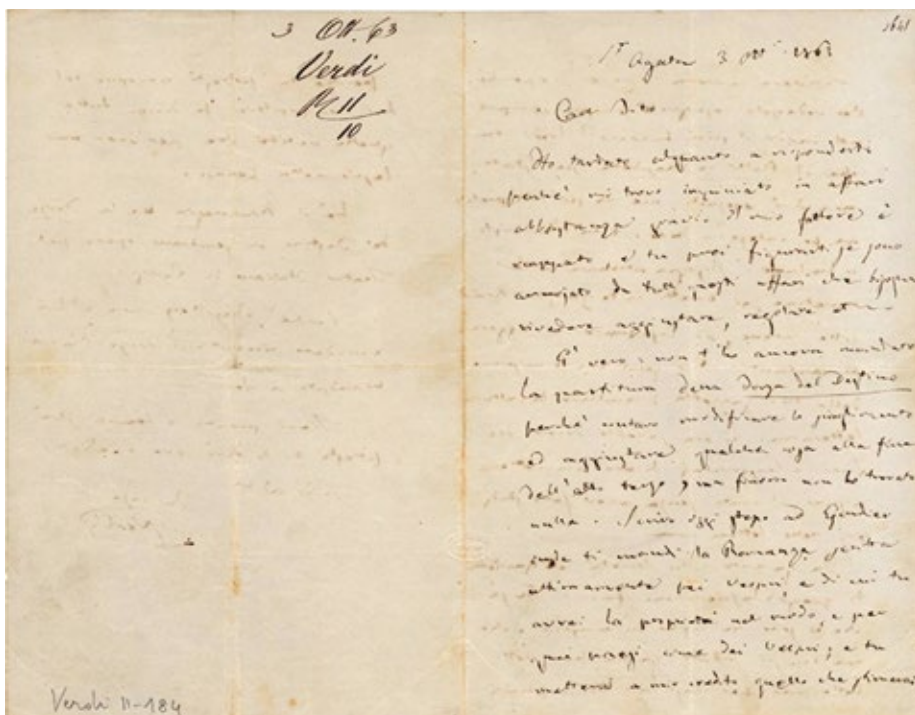 3 Ott. 63
Verdi
R. 11
10
1641
St Agata 3 Ott. 1863
Car Tito
Ho tardato alquanto a risponderti
perché mi trovo inquieto in affari
abbastanza gravi. Il mio fattore è
scappato, e tu puoi figurarti se sono
annojato da tutti questi affari che bisogna
rivedere aggiustare, regolare et
E' vero: non t'ho ancora mandato
la partitura della Forza del Destino
perchè contavo modificare lo scioglimento
ed aggiustare qualche cosa alla fine
dell'atto terzo, ma finora non ho trovato
nulla. Scrivo oggi stesso ad Escudier
onde ti mandi la Romanza scritta
ultimamente pei Vespri, e di cui tu
avrai la proprietà nel modo, e per
quei paesi come dei Vespri; e tu
metterai a mio credito quello che stimerai
Verdi II-184